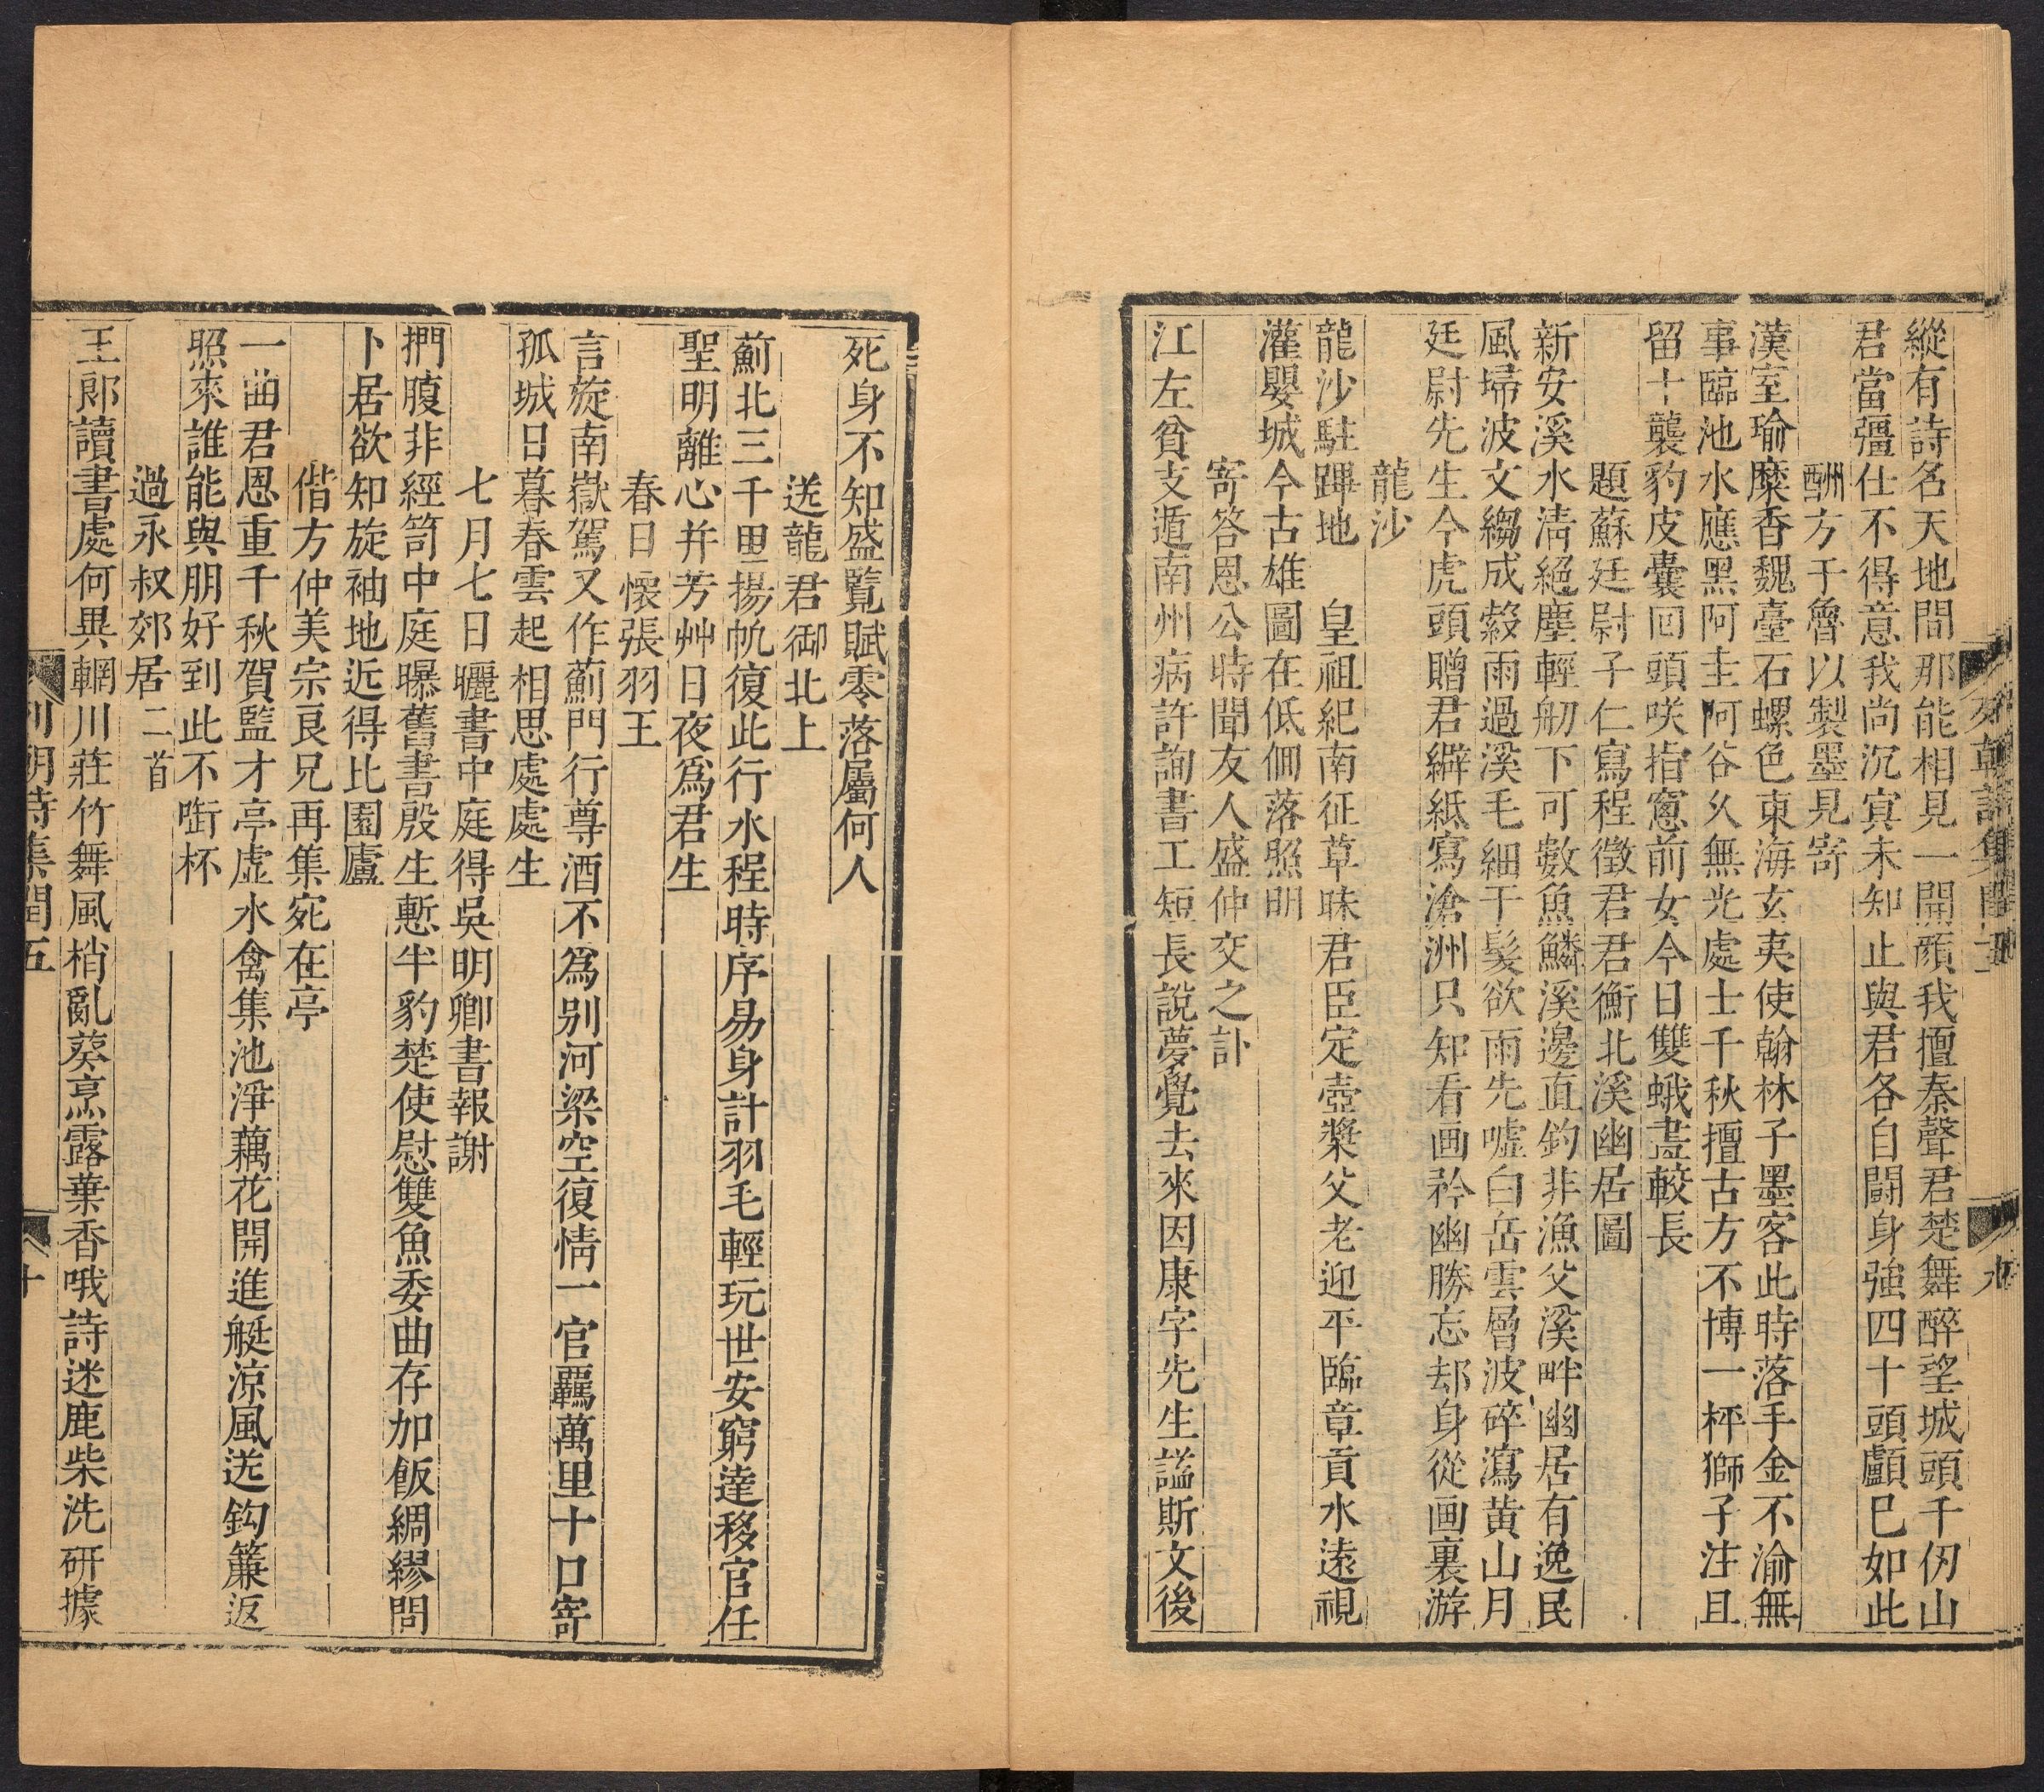 縱有詩名天地間那能相見一開顏我擅秦聲君楚舞醉望城頭千仞山
君當彊仕不得意我尚沉冥未知止與君各自鬪身強四十頭顱已如此
酬方于魯以製墨見寄
漢室瑜糜香魏臺石螺色東海玄夷使翰林子墨客此時落手金不渝無
事臨池水應黑阿圭阿谷久無光處士千秋擅古方不博一枰獅子注且
留十襲豹皮囊回頭咲指窻前女今日雙蛾畫較長
題蘇廷尉子仁寫程徵君君衡北溪幽居圖
新安溪水清絕塵輕舠下可數魚鱗溪邊直釣非漁父溪畔幽居有逸民
風埽波文縐成縠雨過溪毛細于髪欲雨先噓白岳雲層波碎瀉黃山月
廷尉先生今虎頭贈君繲紙寫滄洲只知看画矜幽勝忘却身從画裏游
龍沙
龍沙駐蹕地 皇祖紀南征草昧君臣定壺漿父老迎平臨章貢水遠視
灌嬰城今古雄圖在低佪落照明
寄答恩公時聞友人盛仲交之訃
江左貧支遁南州病許詢書工短長說夢覺去來因康字先生謚斯文後
死身不知盛覽賦零落屬何人
送龍君御北上
薊北三千里揚帆復此行水程時序易身計羽毛輕玩世安窮達移官任
聖明離心并芳艸日夜爲君生
春日懷張羽王
言旋南嶽駕又作薊門行尊酒不爲别河梁空復情一官羈萬里十口寄
孤城日暮春雲起相思處處生
七月七日曬書中庭得吳明卿書報謝
捫腹非經笥中庭曝舊書殷生慙半豹楚使慰雙魚委曲存加飯綢繆問
卜居欲知旋袖地近得比園廬
偕方仲美宗良兄再集宛在亭
一曲君恩重千秋賀監才亭虛水禽集池淨藕花開進艇涼風送鈎簾返
照來誰能與朋好到此不啣杯
過永叔郊居二首
王郎讀書處何異輞川莊竹舞風梢亂葵烹露葉香哦詩迷鹿柴洗研據
詩集間五
十